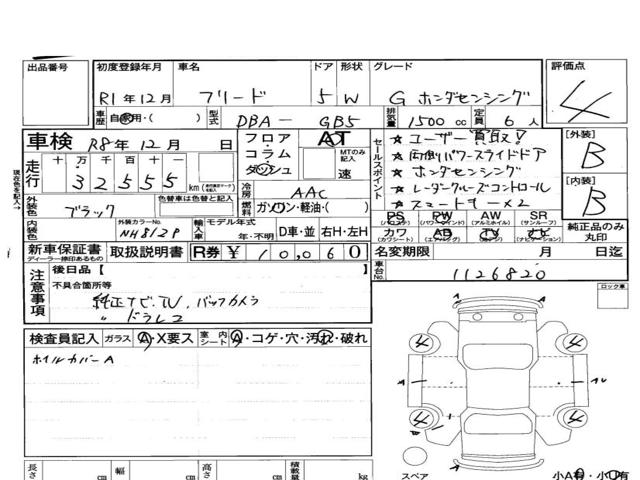 出品番号 初度登録年月 車名 ドア 形状 グレード 評価点
R1年12月 フリード 5 W G ホンダセンシング 4
車歴 自家用・( ) 型式 DBA-GB5 排気量 1500 cc 定員 6 人
車検 R8年12月 日
フロア・コラム ダッシュ AT MTのみ記入 速
セールスポイント
★ユーザー買取!
★両側パワースライドドア
★ホンダセンシング
★レーダークルーズコントロール
★スマートキー×2
[外装] B
[内装] B
現在色を記入→
走行 十 万 千 百 十 一
32555 km
外装色 ブラック 色替車は色替と記入
冷房 AAC
燃料 ガソリン・軽油・( )
内装色 外装カラーNo. NH812P 輸入車 モデル年式 年・不明 D車・並 右H・左H
PS PW AW SR
(パワステ) (パワーウインド) (アルミホイル) (サンルーフ)
カワ AB TV ナビ
(カワシート) (エアバッグ) (ナビゲーション)
純正品のみ丸印
新車保証書 ディーラー捺印あるもの 取扱説明書 R券 ¥10,060
名変期限 月 日迄
車台No. 1126820
注意事項
後日品【 】
不具合箇所等
純正ナビ、TV、バックカメラ
〃 ドラレコ
ロック車
検査員記入 ガラス A・X要ス 室内シート A・コゲ・穴・汚れ・破れ
ホイルカバーA
A
4 4
A A
4 4
A
スペア
小A有・小U有
長さ cm 幅 cm 高さ cm 積載量 kg